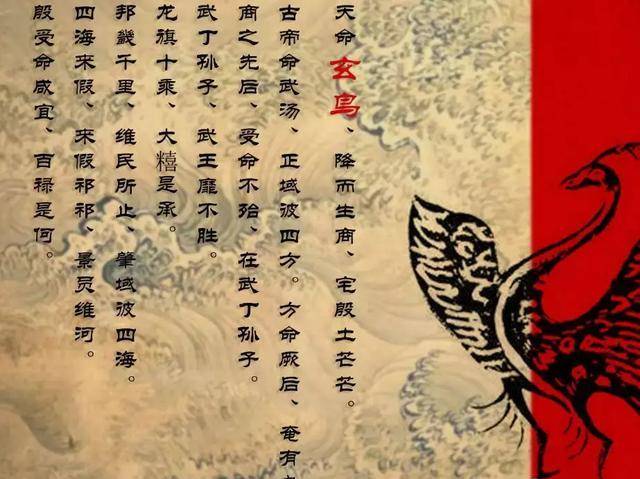 天命玄鸟、降而生商、宅殷土芒芒。
古帝命武汤、正域彼四方。方命厥后、奄有
商之先后、受命不殆、在武丁孙子。
武丁孙子、武王靡不胜。
龙旗十乘、大糦是承。
邦畿千里、维民所止、肇域彼四海。
四海来假、来假祁祁、景员维河。
殷受命咸宜、百禄是何。